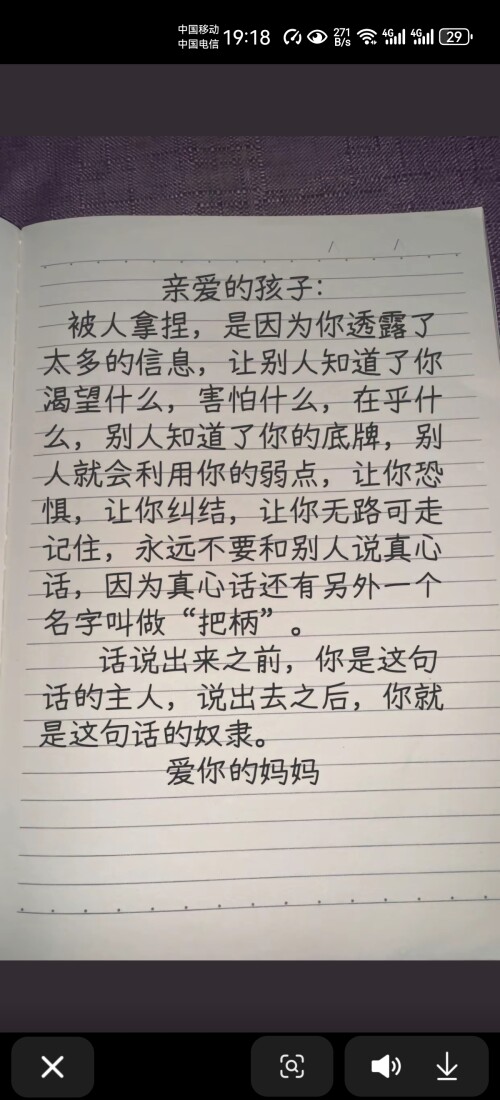 中国移动
中国电信
19:18
271
B/s
4G
4G
29
亲爱的孩子：
被人拿捏，是因为你透露了
太多的信息，让别人知道了你
渴望什么，害怕什么，在乎什
么，别人知道了你的底牌，别
人就会利用你的弱点，让你恐
惧，让你纠结，让你无路可走
记住，永远不要和别人说真心
话，因为真心话还有另外一个
名字叫做“把柄”。
话说出来之前，你是这句
话的主人，说出去之后，你就
是这句话的奴隶。
爱你的妈妈